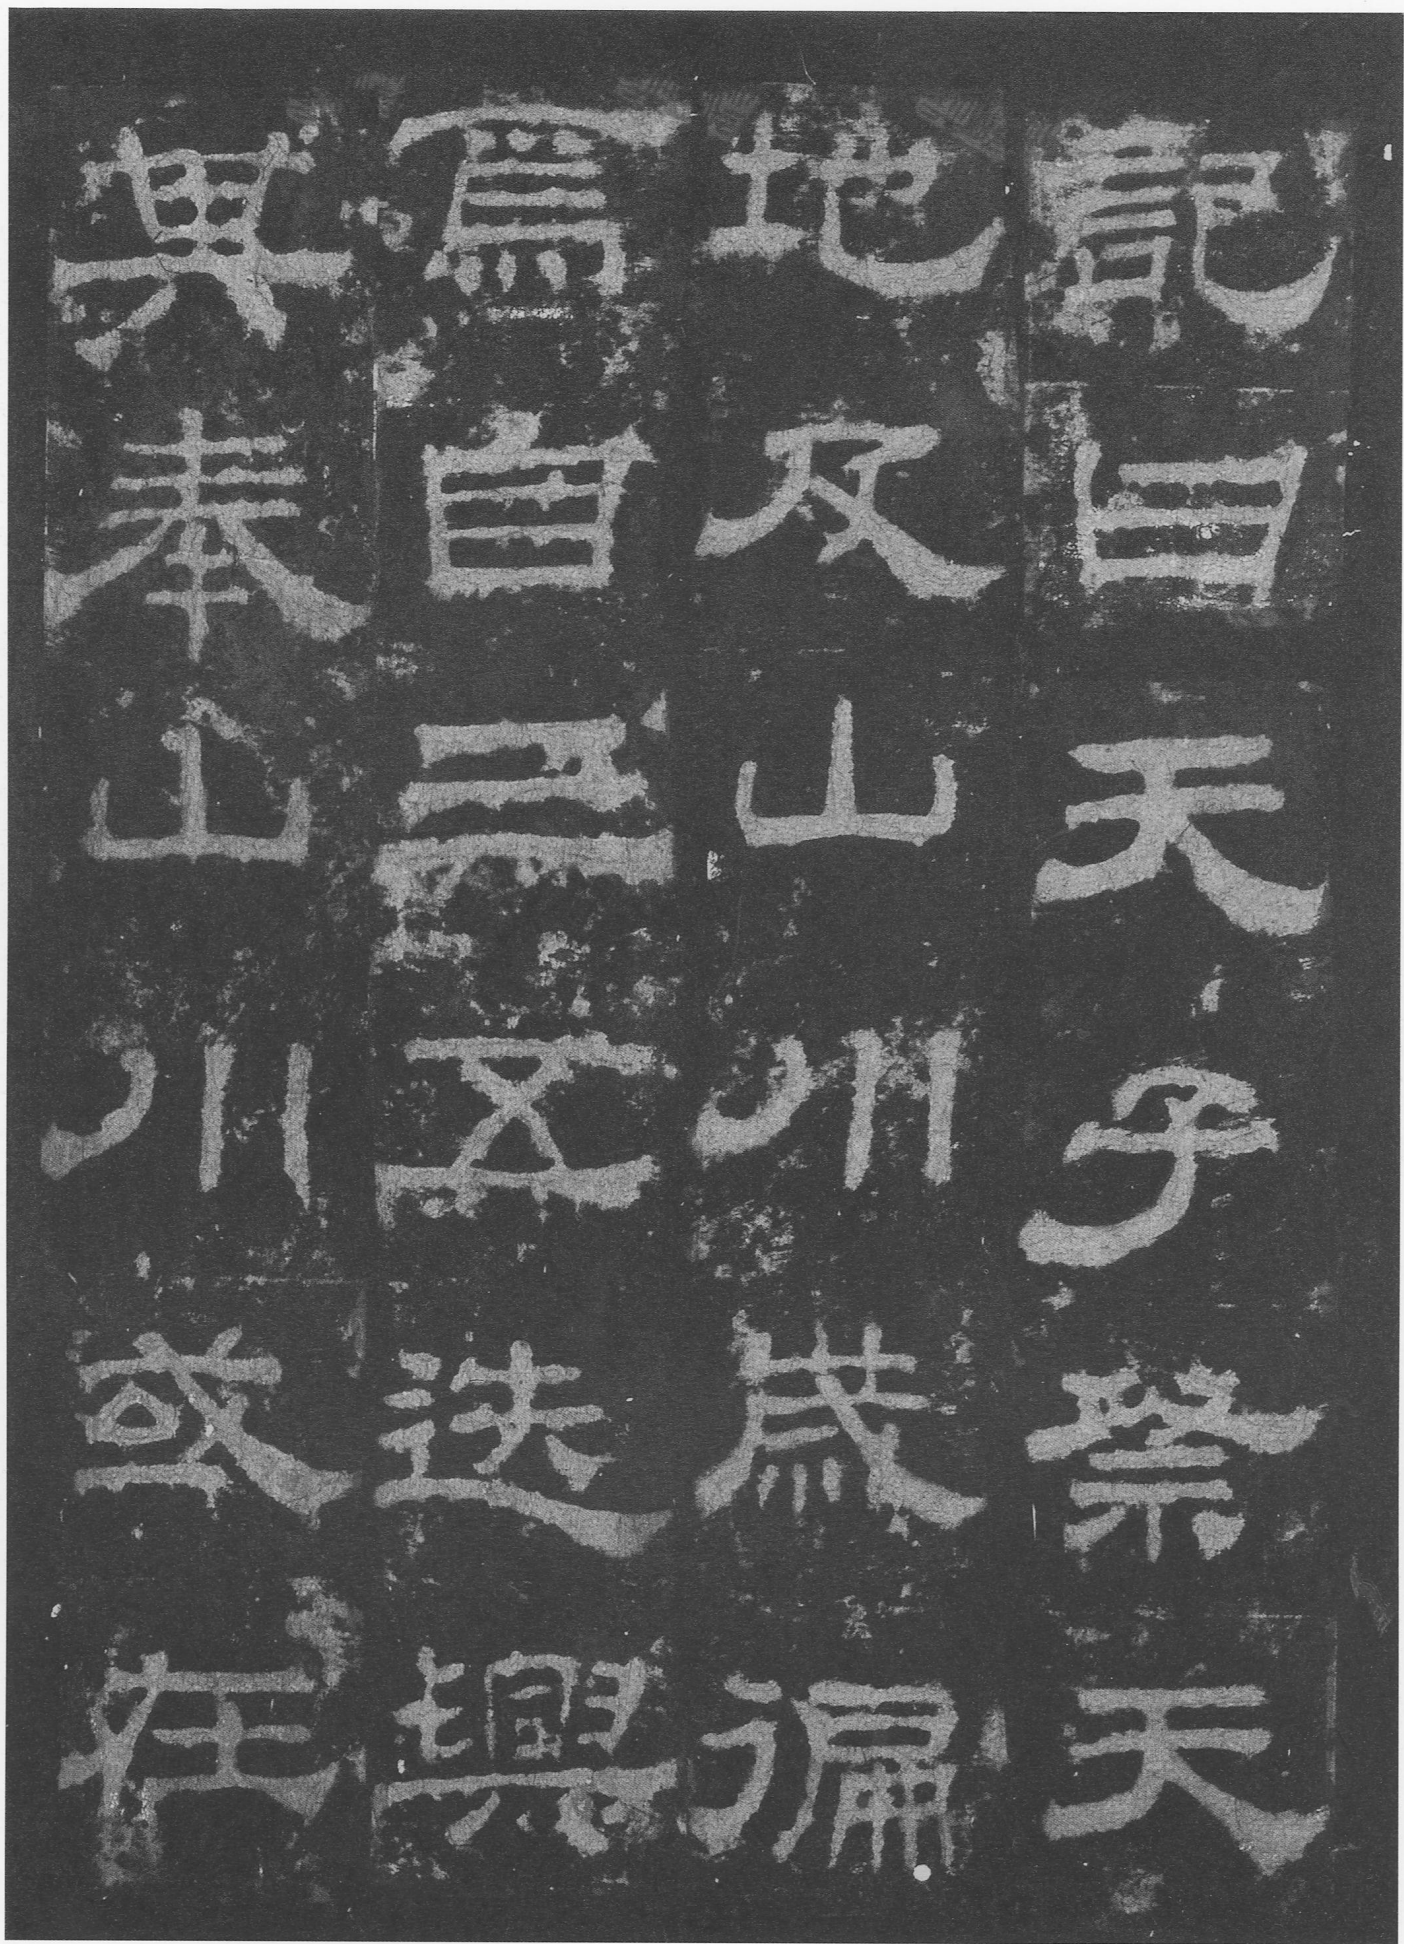 記曰天子祭天
地及山川歲徧
焉自三五迭興
其奉山川或在